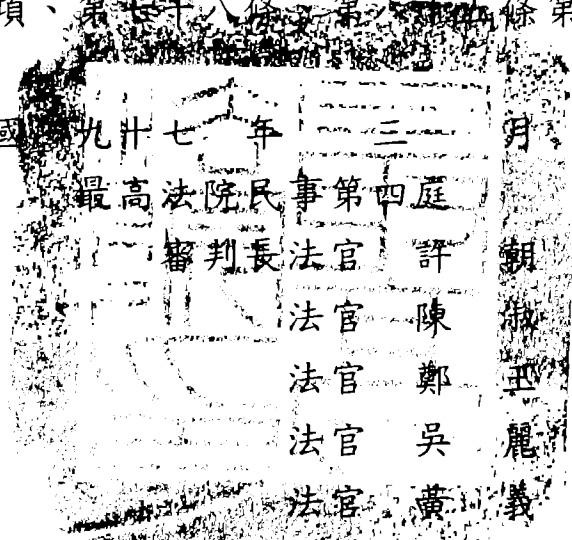 項、第七十八條、第八十條第
國九十七年三月
最高法院民事第四庭
審判長法官許朝
法官陳淑
法官鄭玉
法官吳麗
法官黃義